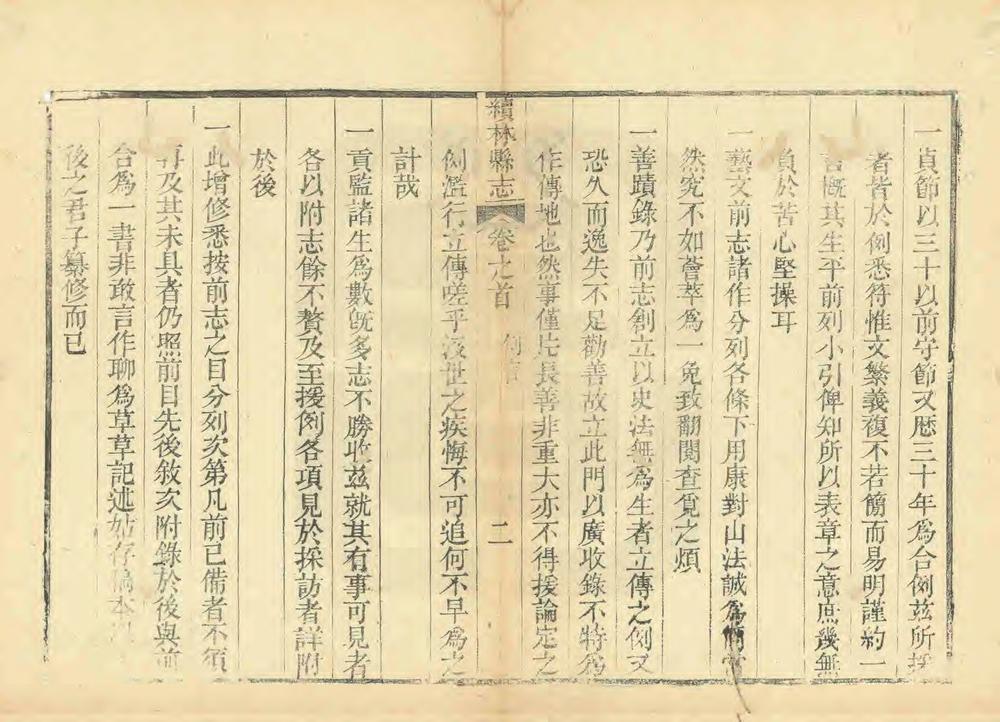 一貞節以三十以前守節又歷三十年為合例茲所採
者皆於例悉符惟文繁義複不若簡而易明謹約一
言概其生平前列小引俾知所以表章之意庶幾無
負於苦心堅操耳
一藝文前志諸作分列各條下用康對山法誠為簡當
然究不如薈萃為一免致翻閱查覓之煩
一善蹟錄乃前志創立以史法無為生者立傳之例又
恐久而逸失不足勸善故立此門以廣收錄不特為
作傳地也然事僅片長善非重大亦不得援論定之
續林縣志
卷之首
例言
二
例濫行立傳嗟乎沒世之疾悔不可追何不早為之
計哉
一貢監諸生為數旣多志不勝收茲就其有事可見者
各以附志餘不贅及至援例各項見於採訪者詳附
於後
一此增修悉按前志之目分列次第凡前已備者不須
再及其未具者仍照前目先後敘次附錄於後與前
合為一書非敢言作聊為草草記述姑存稿本
後之君子纂修而已